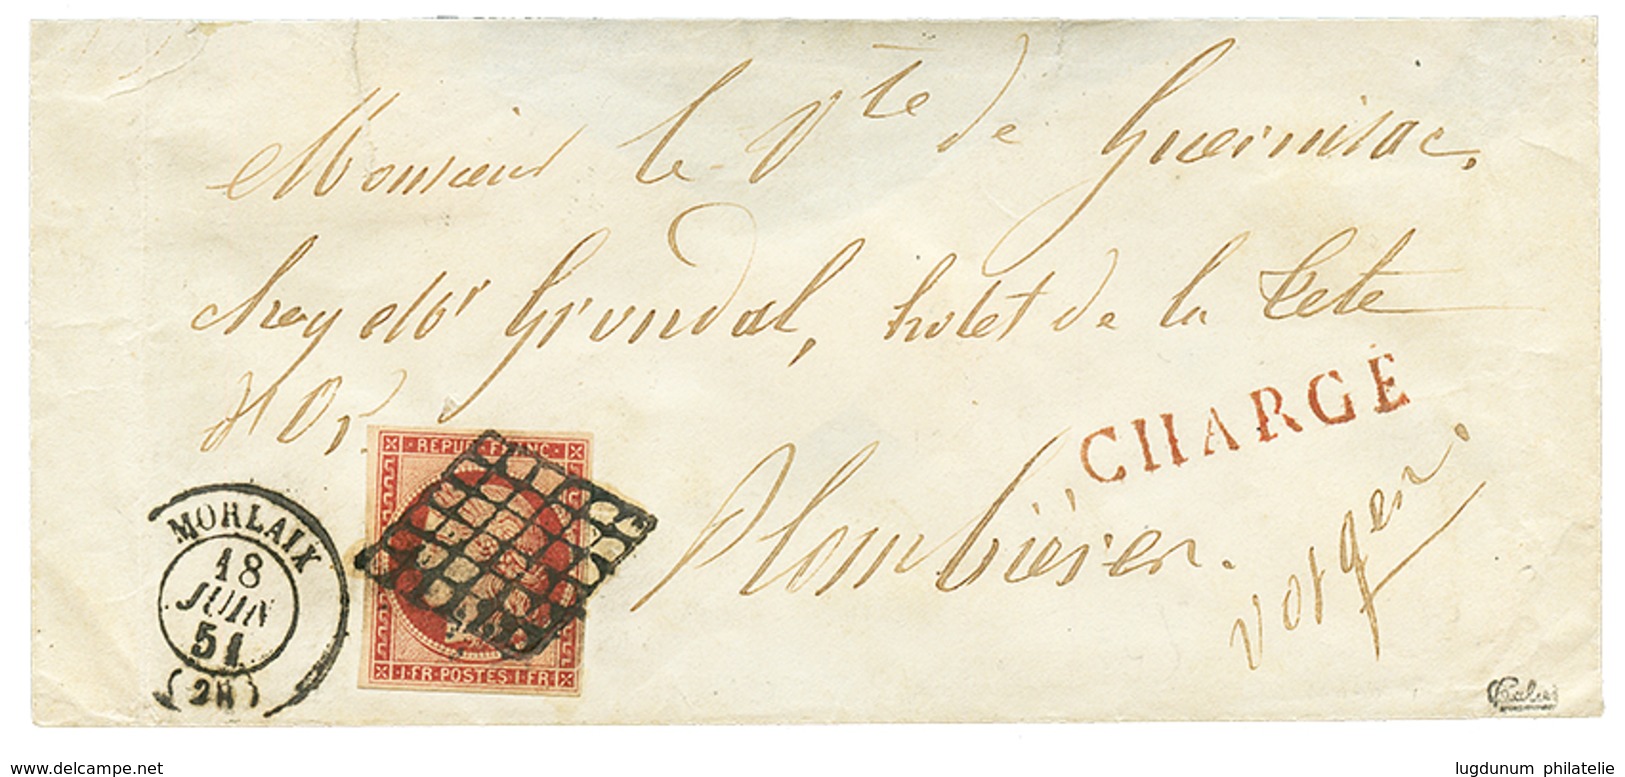 Monsieur le Vte de Guernisac,
chez Mr Grundal, hotel de la Tete
d'Or,
CHARGÉ
Plombières.
Vosges.
MORLAIX
18
JUIN
51
(28)
REPUB. FRANC.
1.FR.POSTES.1.FR
Calves
delcampe.net
lugdunum philatelie